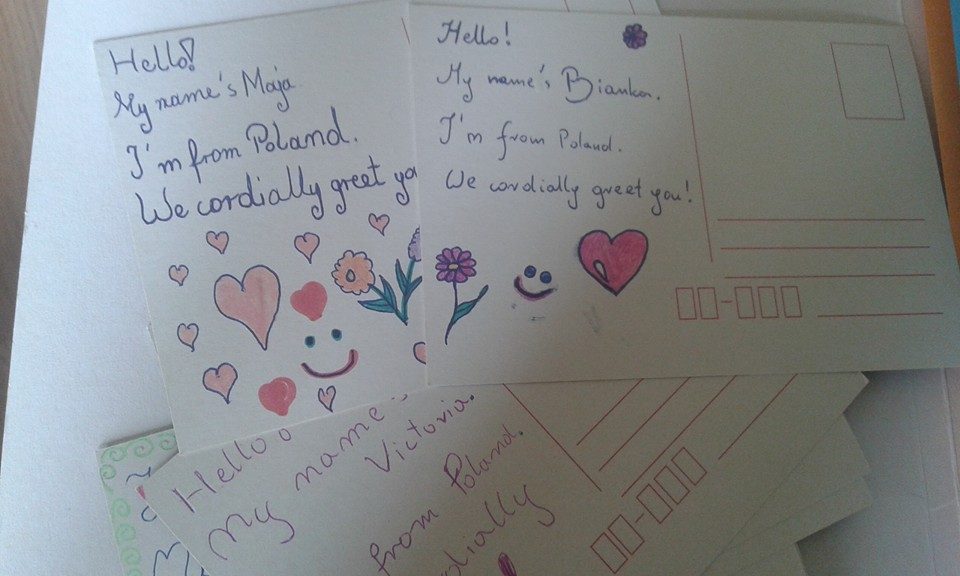 Hello!
My name's Maja.
I'm from Poland.
We cordially greet yo
Hello!
My name's Bianka.
I'm from Poland.
We cordially greet you!
Hello
My name
Victoria.
from Poland.
dially